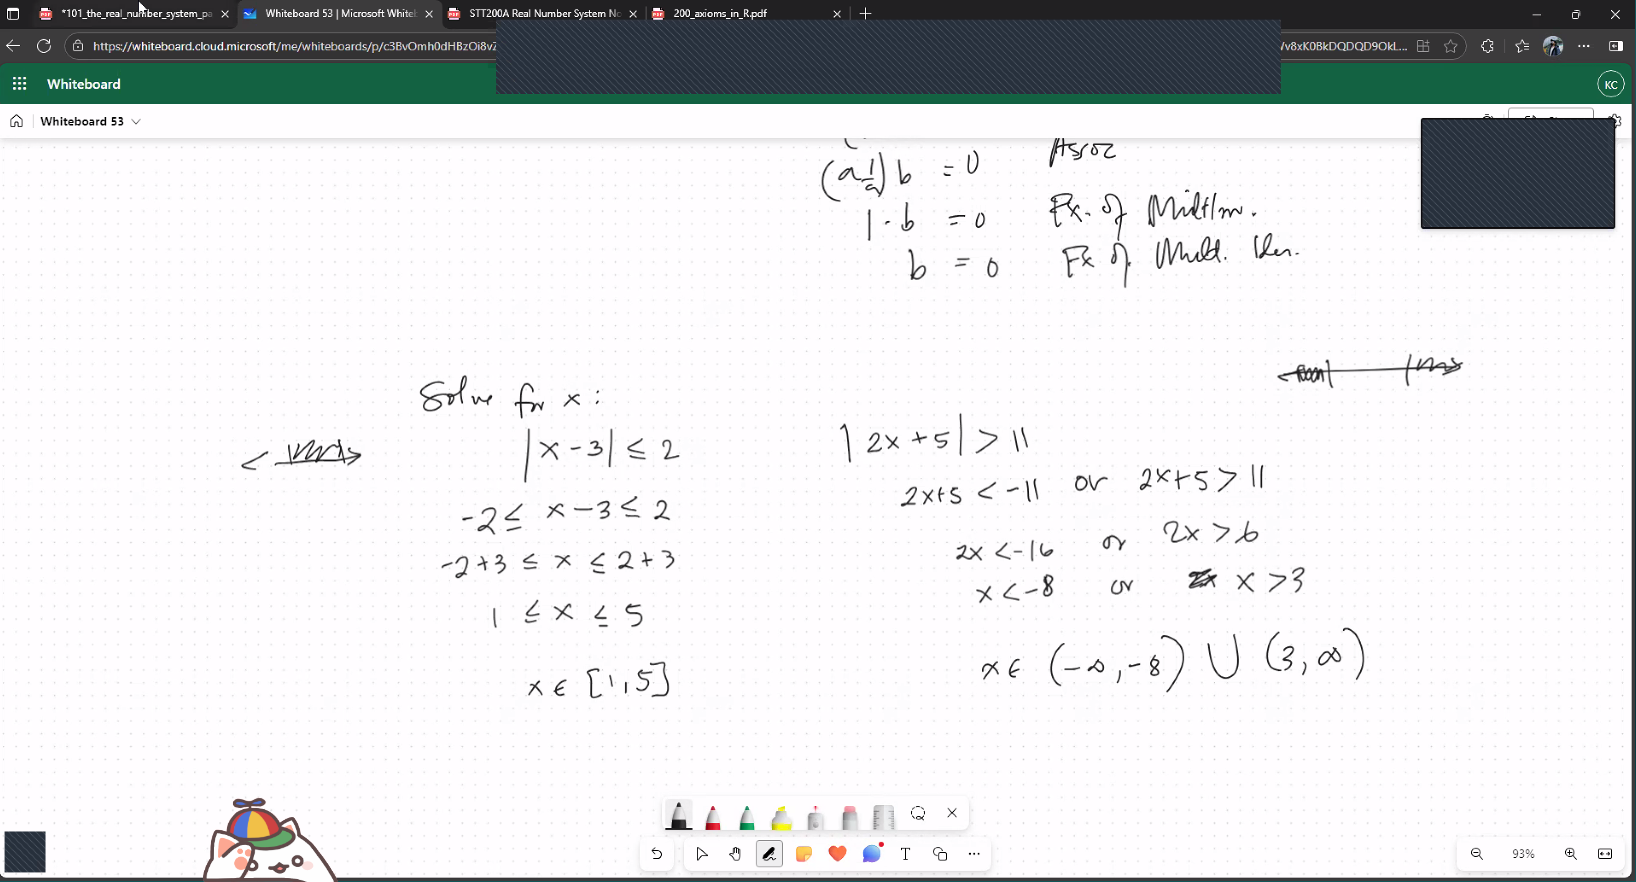 *101_the_real_number_system_pa
Whiteboard 53 | Microsoft Whitel
STT200A Real Number System No
200_axioms_in_R.pdf
https://whiteboard.cloud.microsoft/me/whiteboards/p/c3BvOmh0dHBzOi8vZ
/v8xK0BkDQDQD9OkL...
Whiteboard
KC
Whiteboard 53
Assoc
(a 1/a) b = 0
1 · b = 0 Ex. of Mult Inv.
b = 0 Ex of. Mult. Iden.
Solve for x :
|x - 3| ≤ 2
-2 ≤ x - 3 ≤ 2
-2+3 ≤ x ≤ 2+3
1 ≤ x ≤ 5
x ∈ [1, 5]
|2x + 5| > 11
2x+5 < -11 or 2x+5 > 11
2x < -16 or 2x > 6
x < -8 or x > 3
x ∈ (-∞, -8) ∪ (3, ∞)
T
93%